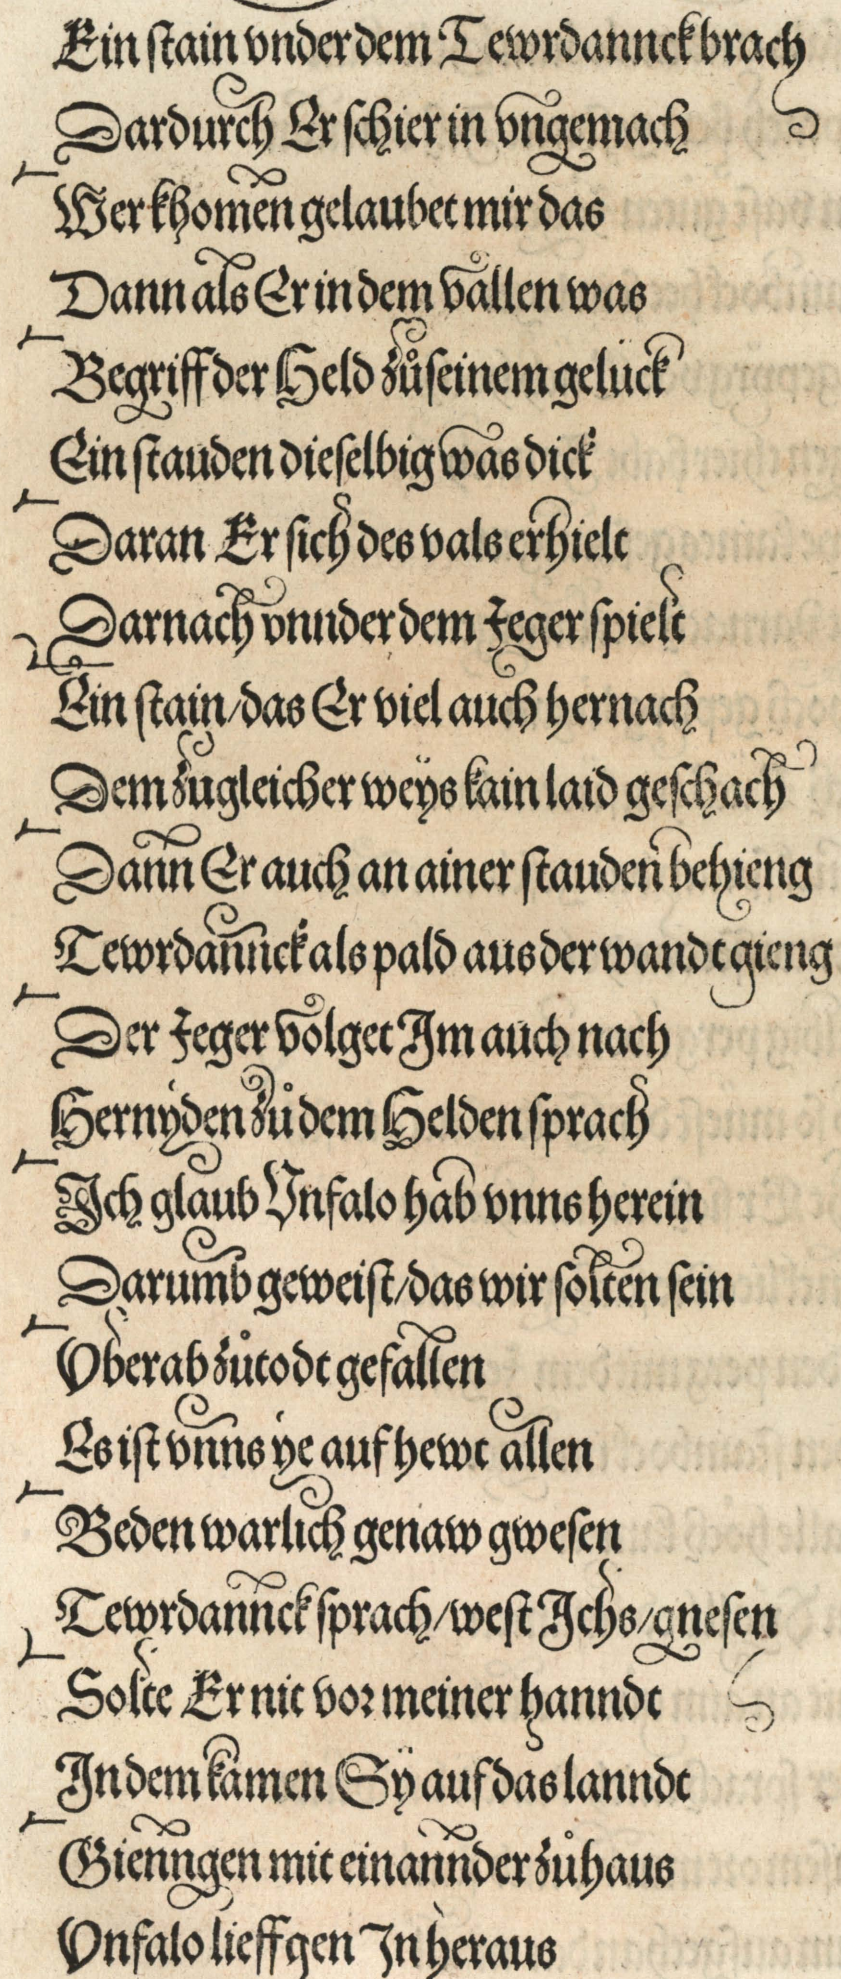 Ein stain vnder dem Tewrdannck brach
Dardurch Er schier in vngemach
Wer khomen gelaubet mir das
Dann als Er in dem vallen was
Begriff der Held zů seinem gelück
Ein stauden dieselbig was dick
Daran Er sich des vals erhielt
Darnach vnnder dem Jeger spielt
Ein stain/das Er viel auch hernach
Dem zugleicher weÿs kain laid geschach
Dann Er auch an ainer stauden behieng
Tewrdannck als pald aus der wandt gieng
Der Jeger volget Im auch nach
Hernÿden zů dem Helden sprach
Ich glaub Vnfalo hab vnns herein
Darumb geweist/das wir solten sein
Vberab zůtodt gefallen
Es ist vnns ÿe auf hewt allen
Beden warlich genaw gwesen
Tewrdannck sprach/west Ichs/gnesen
Solte Er nit vor meiner hanndt
In dem kamen Sÿ auf das lanndt
Gienngen mit einannder zůhaus
Vnfalo lieff gen In heraus